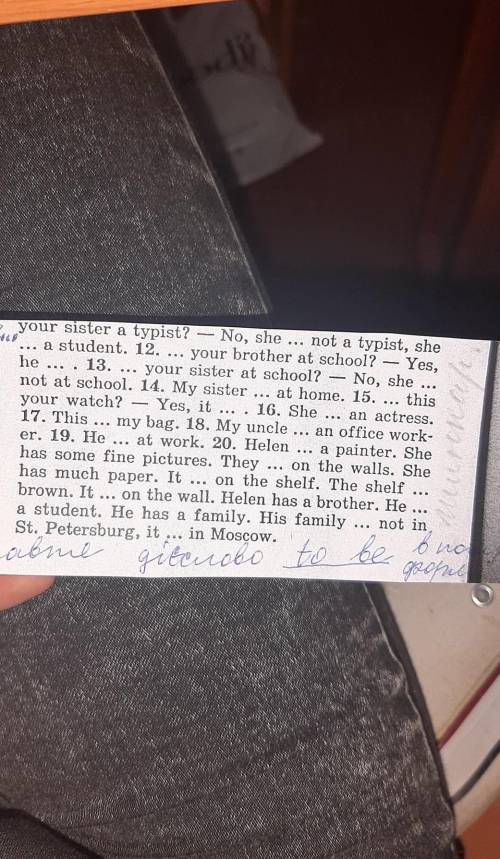 your sister a typist? — No, she ... not a typist, she
... a student. 12. ... your brother at school? — Yes,
he ... . 13. ... your sister at school? — No, she ...
not at school. 14. My sister ... at home. 15. ... this
your watch? — Yes, it ... . 16. She ... an actress.
17. This ... my bag. 18. My uncle ... an office work-
er. 19. He ... at work. 20. Helen ... a painter. She
has some fine pictures. They ... on the walls. She
has much paper. It ... on the shelf. The shelf ...
brown. It ... on the wall. Helen has a brother. He ...
a student. He has a family. His family ... not in
St. Petersburg, it ... in Moscow.
дієслово to be в